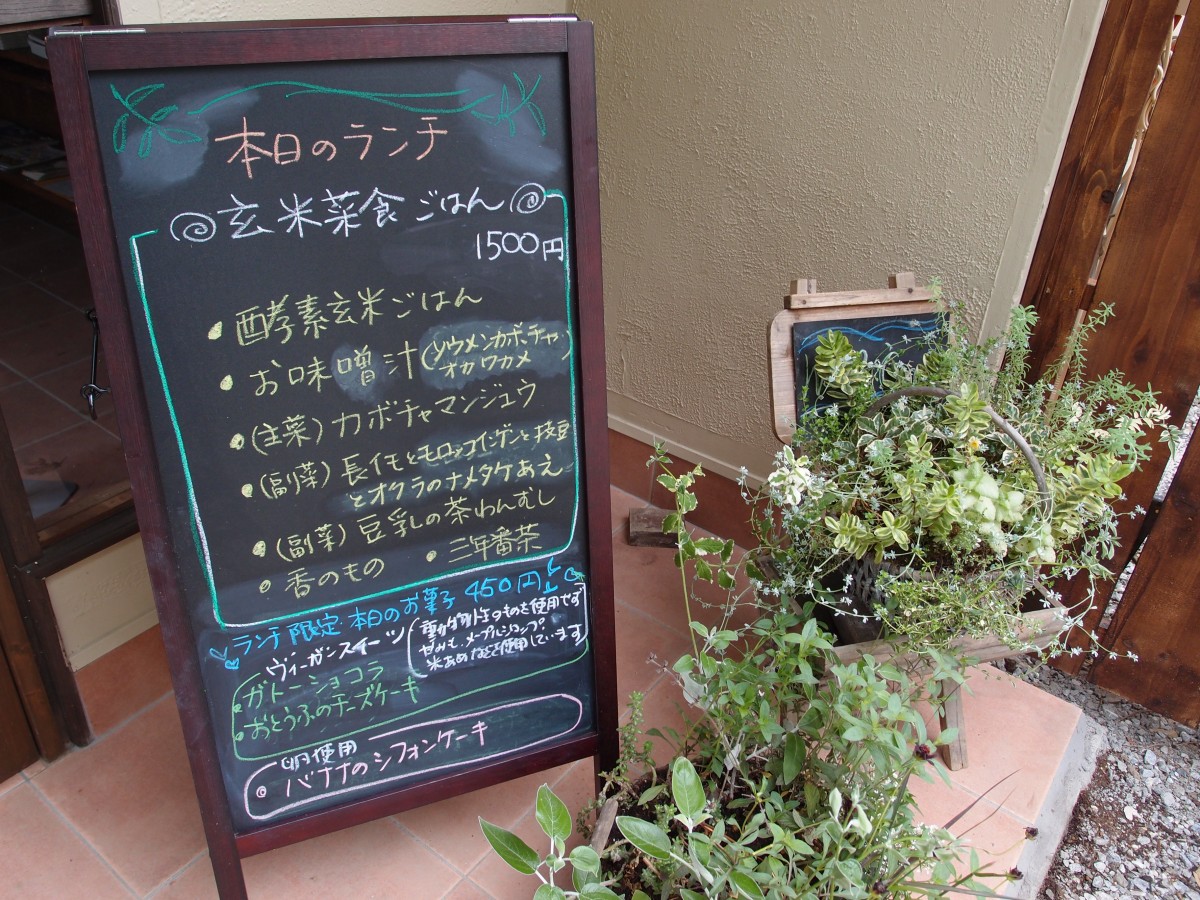 本日のランチ
玄米菜食ごはん
1500円
・酵素玄米ごはん
・お味噌汁(ソウメンカボチャ
オカワカメ)
・(主菜)カボチャマンジュウ
・(副菜)長イモとモロッコインゲンと枝豆
とオクラのナメタケあえ
・(副菜)豆乳の茶わんむし
・香のもの ・三年番茶
ランチ限定・本日のお菓子 450円
ヴィーガンスイーツ
(動物性のものを使用せず
甘みも、メープルシロップ
米あめなどを使用しています
・ガトーショコラ
・おとうふのチーズケーキ
卵使用
・バナナのシフォンケーキ